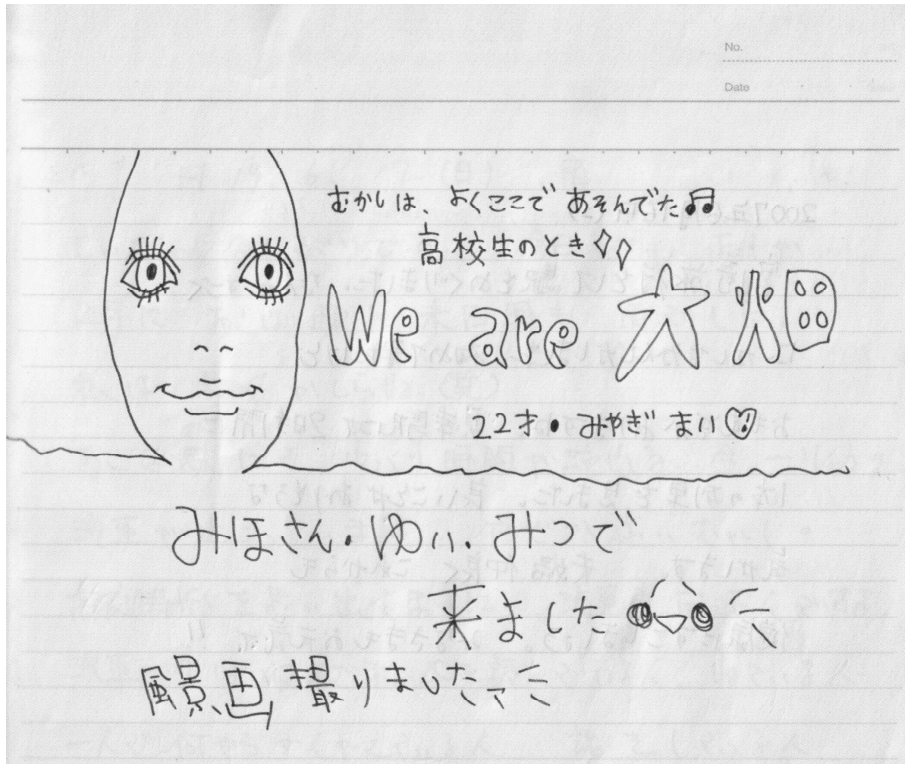 No.
Date
むかしは、よくここで あそんでた♫
高校生のとき
We are 大畑
22才・みやぎ まい♡
みほさん・ゆい・みつで
来ました
風景画 撮りました